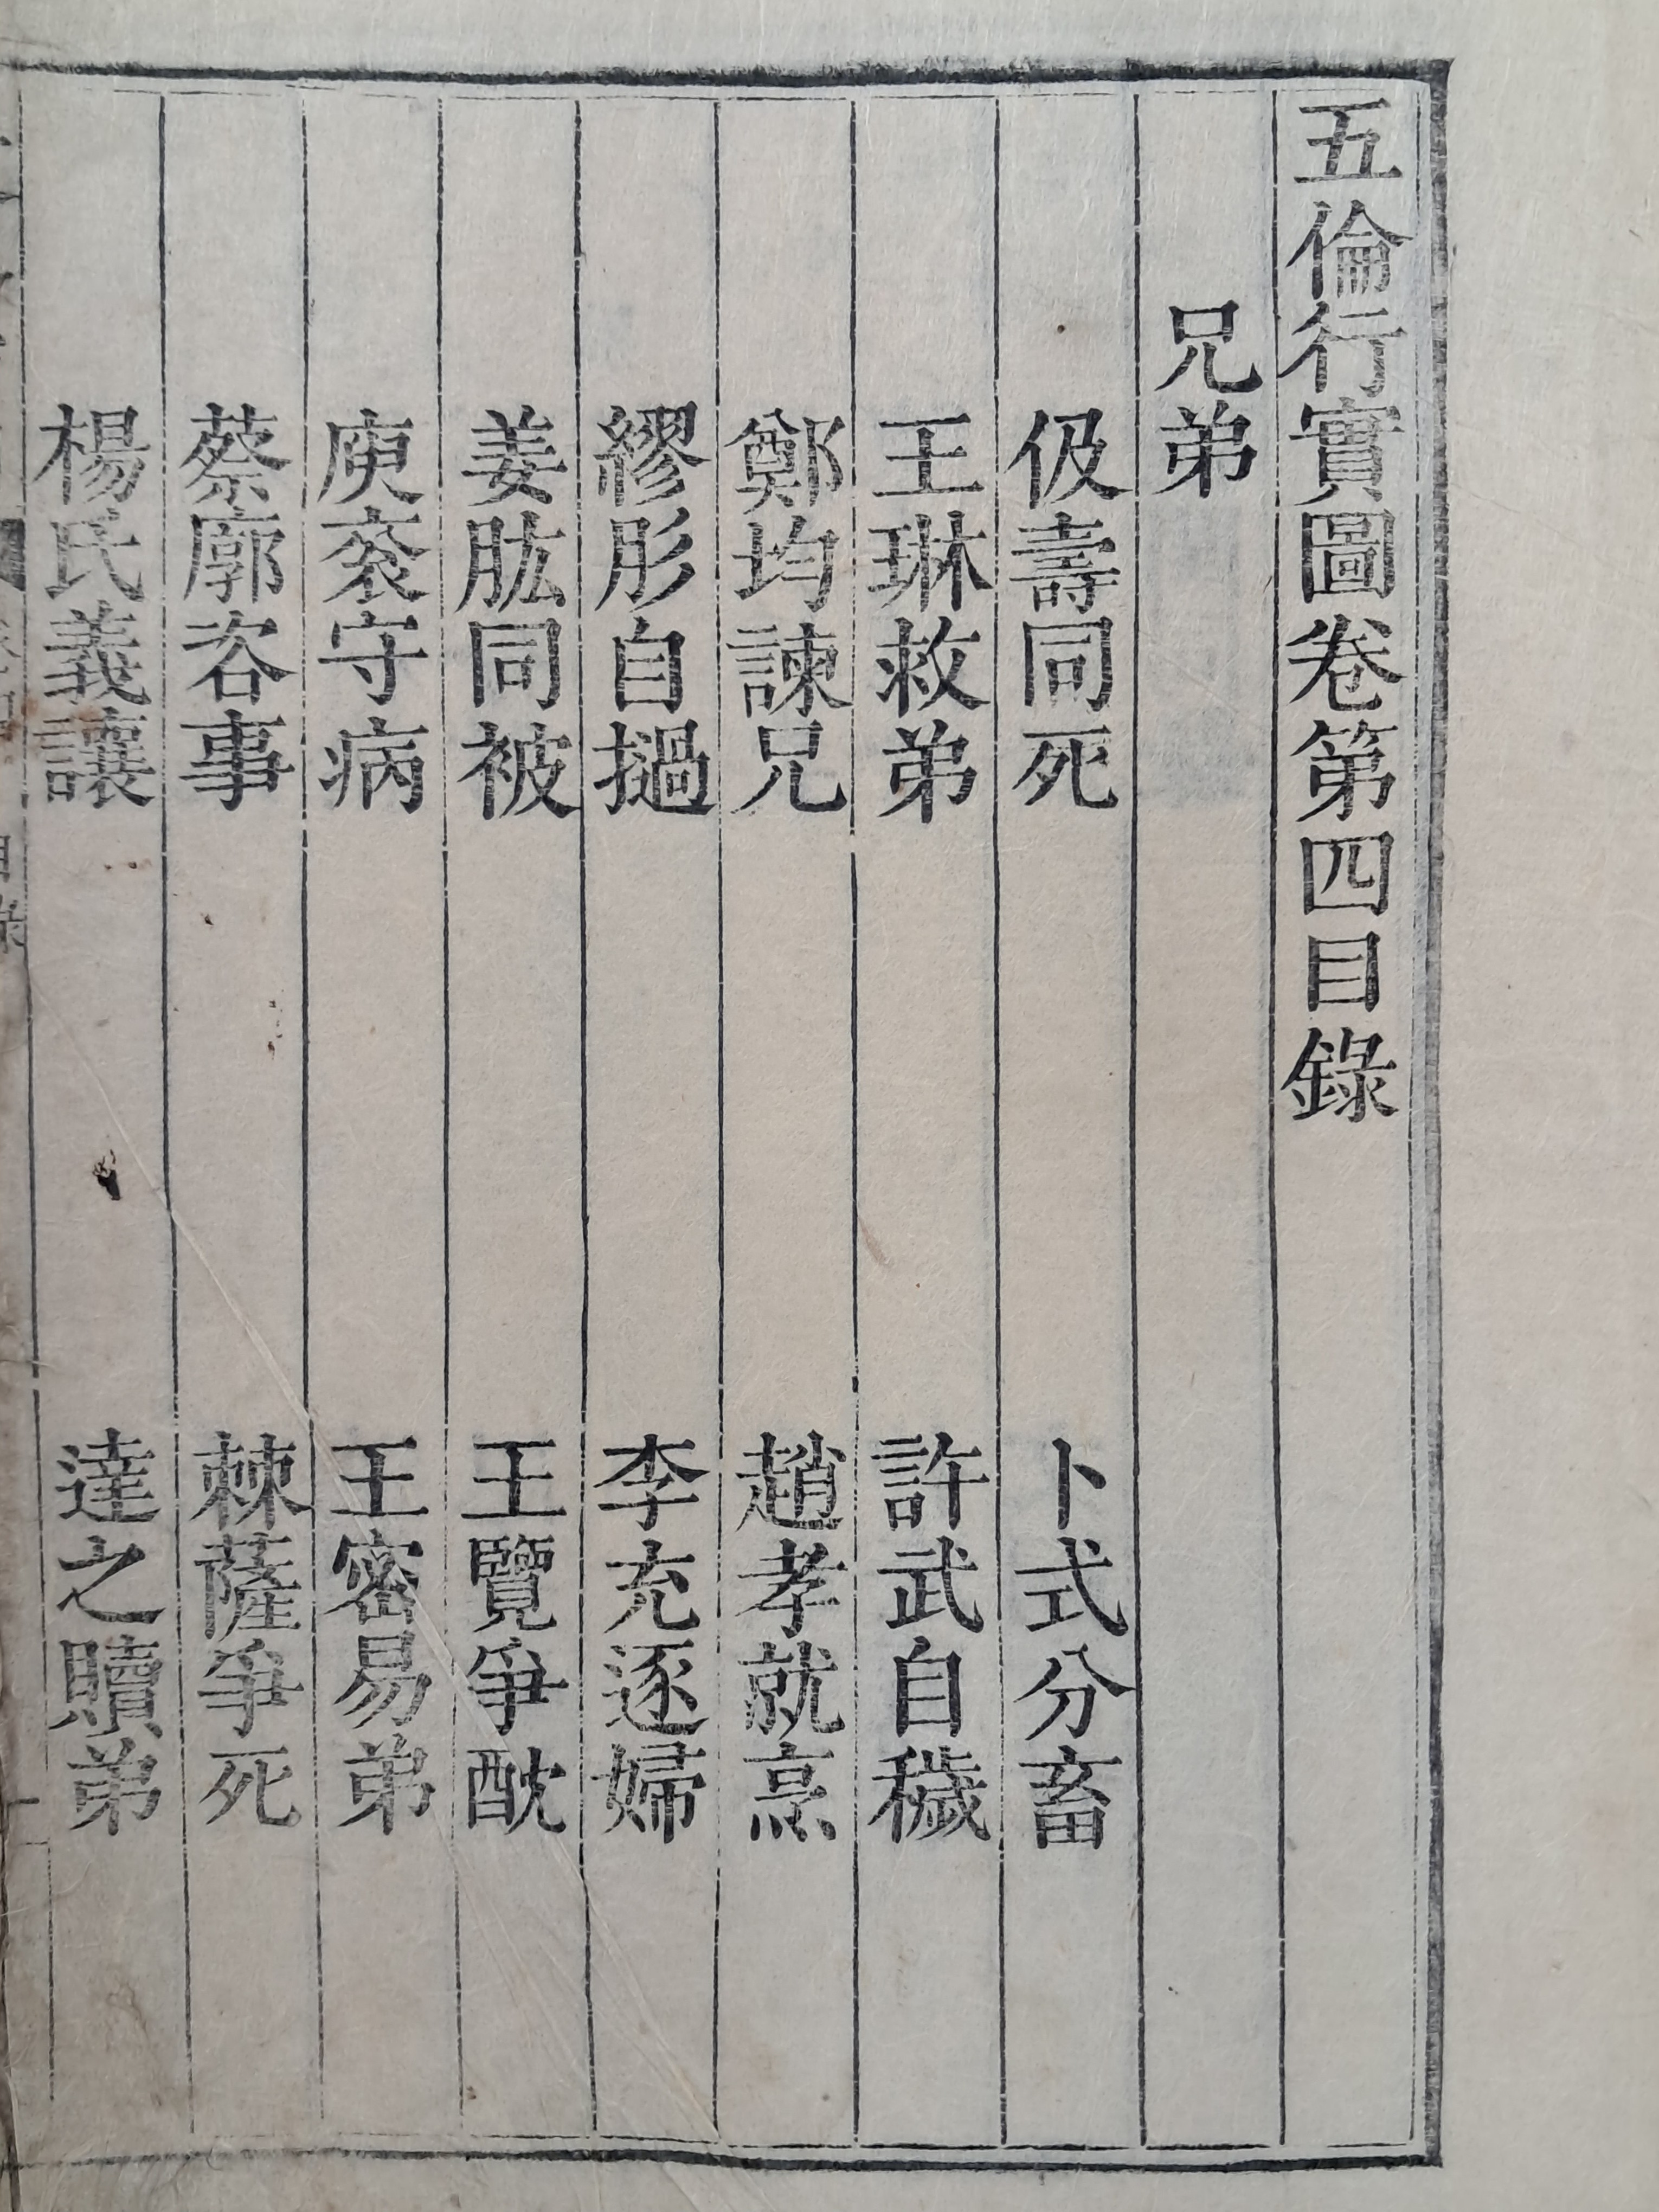 五倫行實圖卷第四目錄
兄弟
伋壽同死 卜式分畜
王琳救弟 許武自穢
鄭均諫兄 趙孝就烹
繆肜自撾 李充逐婦
姜肱同被 王覽爭酖
庾袞守病 王密易弟
蔡廓咨事 棘薩爭死
楊氏義讓 達之贖弟